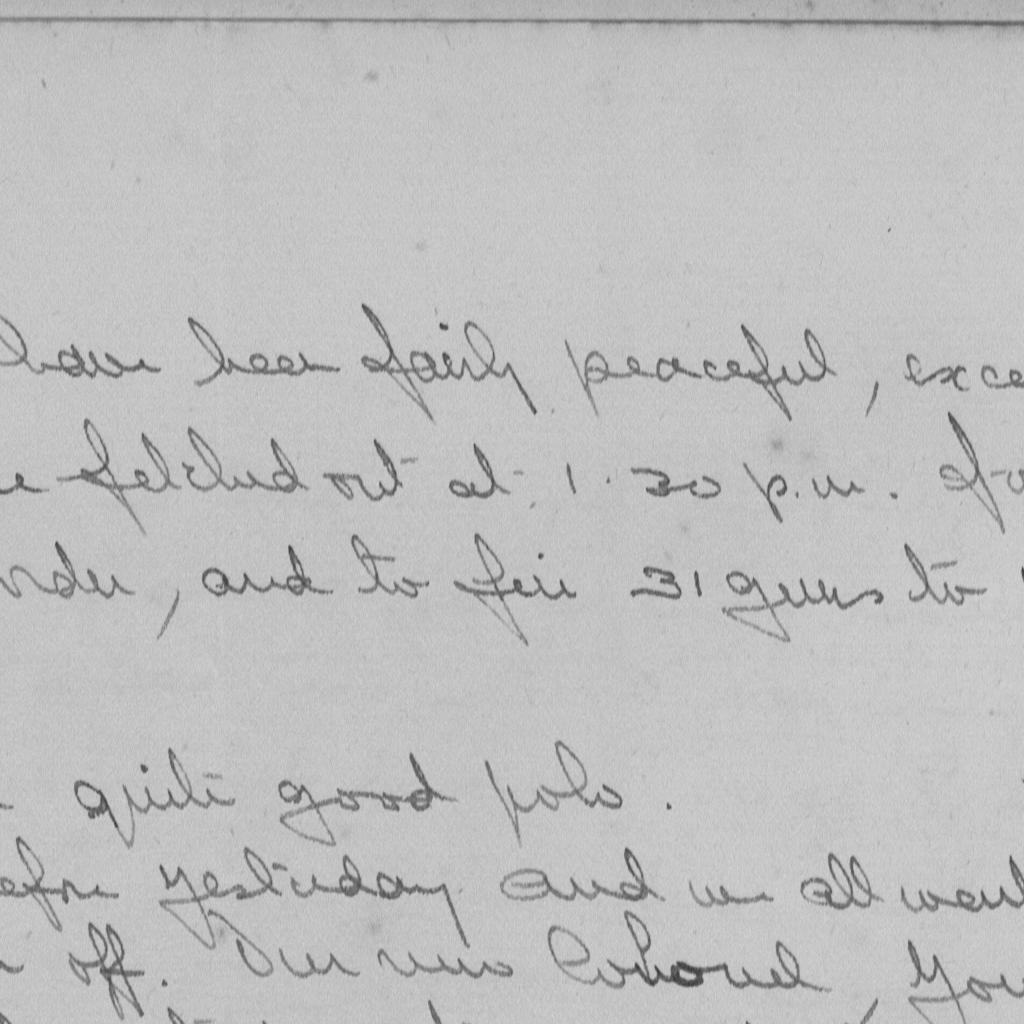 have been fairly peaceful, exce
fetched out at 1.30 p.m. fo
order, and to fire 31 guns to
quite good polo.
efore yesterday and we all went
off. Our new Colonel, You